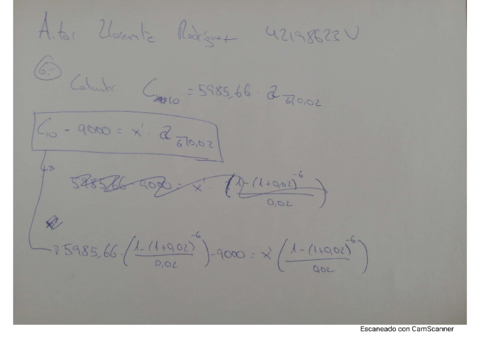 Aitor Llorente Rodríguez 42198623V
6.-
Calcular C₁₀ = 5985,66 · a₆̅|0,02
C₁₀ - 9000 = x' · a₆̅|0,02
5985,66 - 9000 = x' · (1-(1+0,02)⁻⁶ / 0,02)
5985,66 · (1-(1+0,02)⁻⁶ / 0,02) - 9000 = x' (1-(1+0,02)⁻⁶ / 0,02)
Escaneado con CamScanner